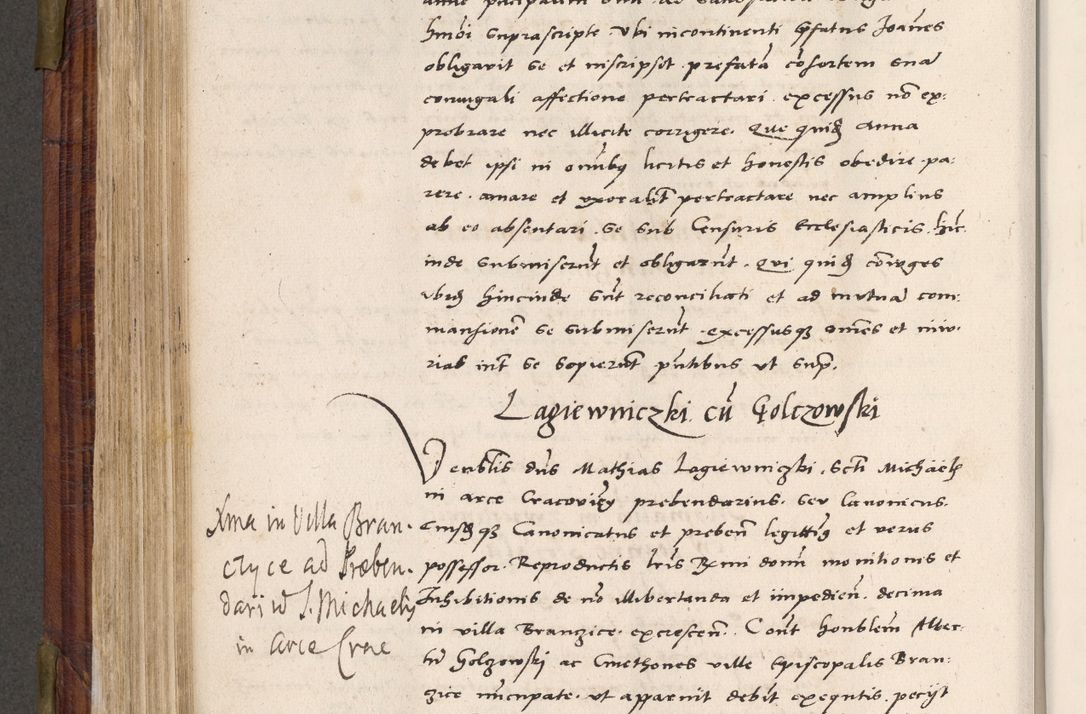 hmoi suprascripte ubi incontinenti pfatus Joanes
obligavit se et inscripsit prefata cosortem sua
coniugali affectione pertractari excessus no ex,
probrare nec illicite corrigere. Que quid Anna
debet ipsi in omibus licitis et honestis obedire pa,
rere. amare et uxoralit pertractare nec amplius
ab eo absentari. se sub Censuris Ecclesiasticis. hic
inde submiserut et obligarut. Qui quid coiuges
ibid hincinde sut reconciliati et ad mutua com,
mansione se submiserut. excessusque omes et iniu,
rias int se sopierut pntibus ut sup.
Lagiewniczki cu Golczowski
Venblis dns Mathias Lagiewniczki, scti Michaelis
in arce Cracovien prebendarius. seu Canonicus.
Eiusque Canonicatus et preben legittimus et verus
possessor. Reproductis lris Rmi domi monitionis et
Inhibitionis de no illibertanda et impedien. decima
in villa Branzice. excrescen. Cont honblem Alber,
tu Golczowski ac Cmethones ville Episcopalis Bran,
zice nucupate. ut apparuit debit exequtis. peciit
Xma in Villa Bran,
czyce ad Præben,
dariu S. Michaelis
in Arce Crac